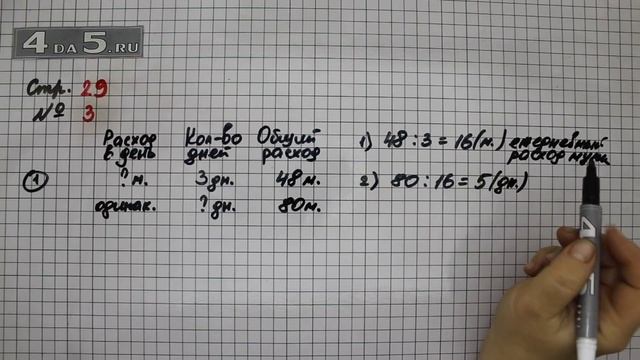 4 DA 5.RU
Стр. 29
№ 3
Расход в день Кол-во дней Общий расход
① ? м. 3 дн. 48 м.
одинак. ? дн. 80 м.
1) 48 : 3 = 16 (м.) ежедневный
расход муки
2) 80 : 16 = 5 (дн.)